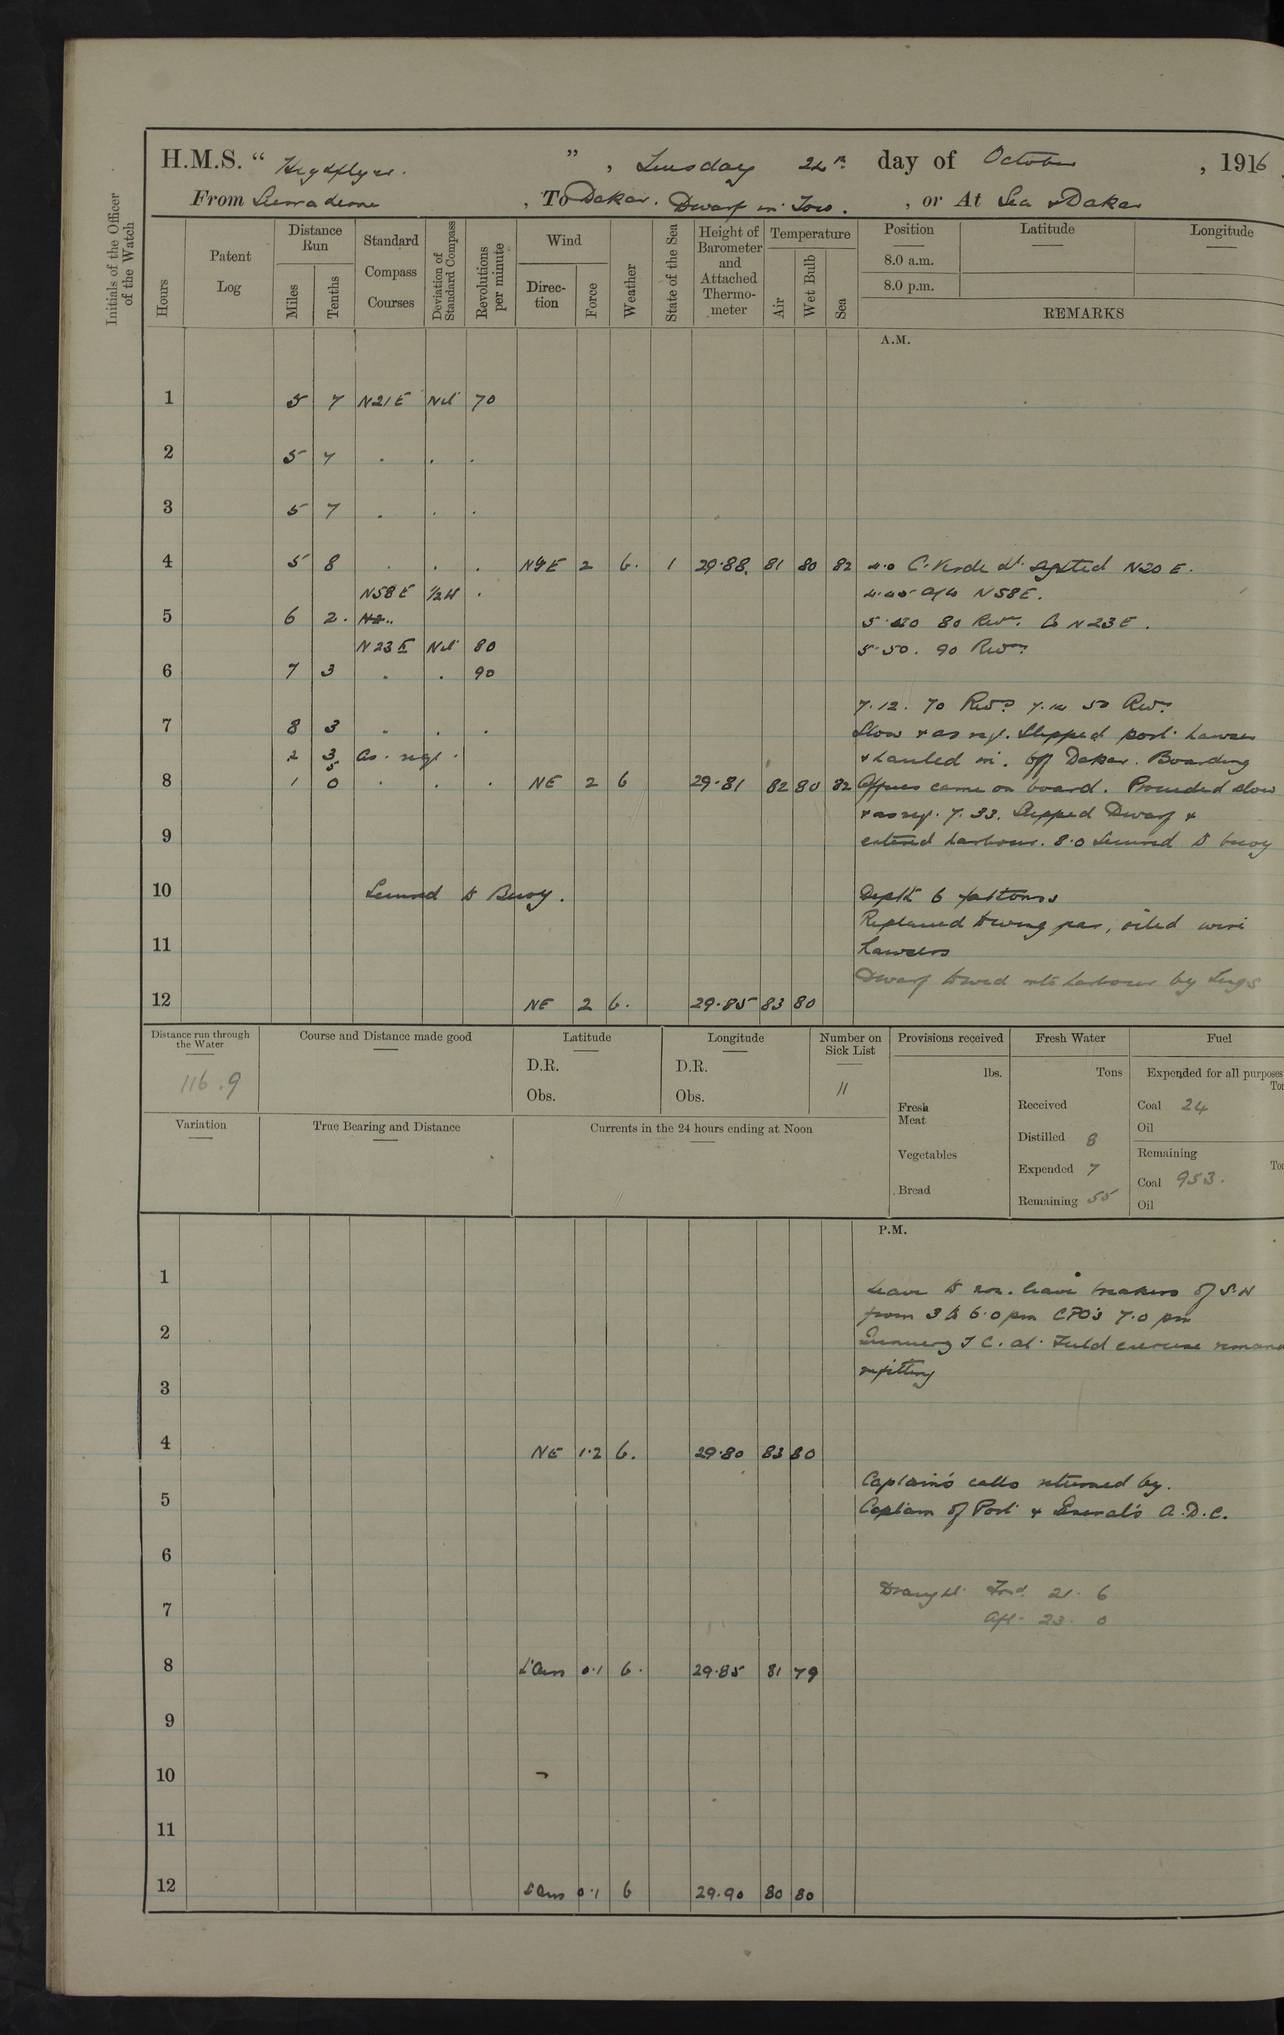 H.M.S. " Highflyer. " , Tuesday 24th day of October , 1916
From Sierra Leone , To Dakar. Dwarf in Tow. , or At Sea & Dakar
Initials of the Officer of the Watch
Hours Patent Log Distance Run Miles Tenths Standard Compass Courses Deviation of Standard Compass Revolutions per minute Wind Direction Force Weather State of the Sea Height of Barometer and Attached Thermometer Temperature Air Wet Bulb Sea
Position Latitude Longitude
8.0 a.m.
8.0 p.m.
REMARKS
A.M.
1 5 7 N21E Nil 70
2 5 7 . . .
3 5 7 . . .
4 5 8 . . . NE 2 b. 1 29.88. 81 80 82 4.0 C. Verde Lt. sighted N20E.
N58E 1/2W . 4.45 a/c N58E.
5 6 2. 80 Revs. Co N23E.
N23E Nil 80 5.50. 90 Revs.
6 7 3 . . 90
7.12. 70 Revs. 7.14 50 Revs.
7 8 3 . . . Slow & as req. Slipped port hawser
2 3 as. req. & hauled in. Off Dakar. Boarding
8 1 0 . . . NE 2 b 29.81 82 80 82 Officer came on board. Proceeded slow
& as req. 7.33. Slipped Dwarf &
9 entered harbour. 8.0 Secured to buoy
10 Secured to Buoy. Depth 6 fathoms
Replaced towing gear, oiled wire
11 hawsers
Dwarf towed into harbour by Tugs
12 NE 2 b. 29.85 83 80
Distance run through the Water 116.9
Course and Distance made good
Latitude D.R. Obs.
Longitude D.R. Obs.
Number on Sick List 11
Provisions received lbs. Fresh Meat Vegetables Bread
Fresh Water Tons Received Distilled 8 Expended 7 Remaining 55
Fuel Expended for all purposes Coal 24 Oil Remaining Coal 953. Oil
Variation
True Bearing and Distance
Currents in the 24 hours ending at Noon
P.M.
1 Leave to non. leave breakers of S.N
from 3 to 6.0 pm CPO's 7.0 pm
2 Gunnery T.C. at Field exercise remainder
refitting
3
4 NE 1.2 b. 29.80 83 80
Captain's calls returned by.
5 Captain of Port & General's A.D.C.
6
Draught Ford. 21. 6
7 Aft. 23. 0
8 L'Airs 0.1 b. 29.85 81 79
9
10
11
12 L'Airs 0.1 b 29.90 80 80